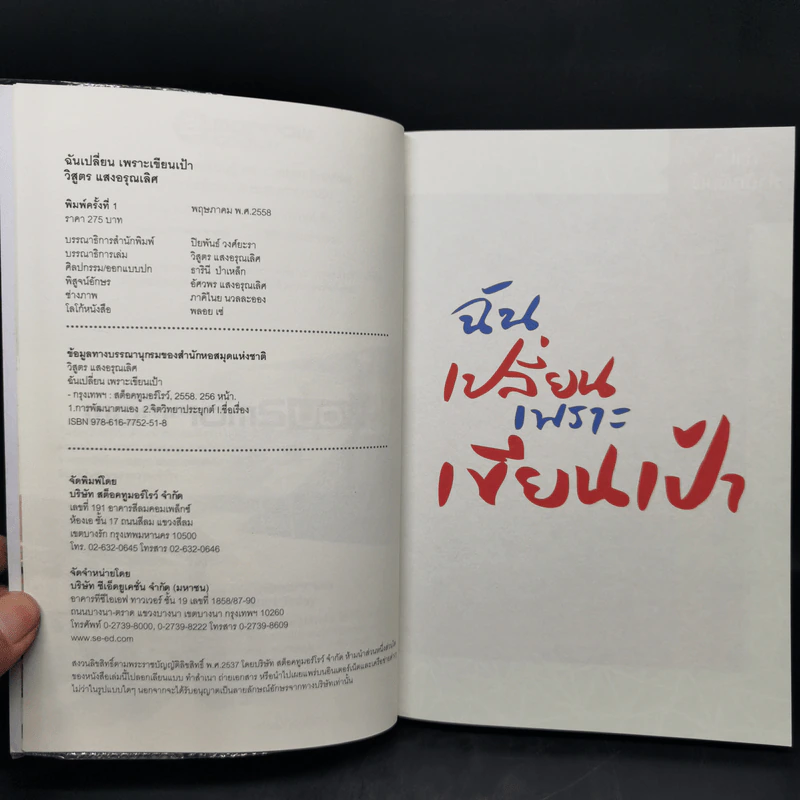 ฉันเปลี่ยน เพราะเขียนเป้า
วิสูตร แสงอรุณเลิศ
พิมพ์ครั้งที่ 1 พฤษภาคม พ.ศ.2558
ราคา 275 บาท
บรรณาธิการสำนักพิมพ์ ปิยพันธ์ วงศ์ยะรา
บรรณาธิการเล่ม วิสูตร แสงอรุณเลิศ
ศิลปกรรม/ออกแบบปก ธารินี ป่าเหล็ก
พิสูจน์อักษร อัศวพร แสงอรุณเลิศ
ช่างภาพ ภาคิไนย นวลละออง
โลโก้หนังสือ พลอย เซ่
ข้อมูลทางบรรณานุกรมของสำนักหอสมุดแห่งชาติ
วิสูตร แสงอรุณเลิศ
ฉันเปลี่ยน เพราะเขียนเป้า
- กรุงเทพฯ : สต็อคทูมอร์โรว์, 2558. 256 หน้า.
1.การพัฒนาตนเอง 2.จิตวิทยาประยุกต์ I.ชื่อเรื่อง
ISBN 978-616-7752-51-8
จัดพิมพ์โดย
บริษัท สต็อคทูมอร์โรว์ จำกัด
เลขที่ 191 อาคารสีลมคอมเพล็กซ์
ห้องเอ ชั้น 17 ถนนสีลม แขวงสีลม
เขตบางรัก กรุงเทพมหานคร 10500
โทร. 02-632-0645 โทรสาร 02-632-0646
จัดจำหน่ายโดย
บริษัท ซีเอ็ดยูเคชั่น จำกัด (มหาชน)
อาคารทีซีไอเอฟ ทาวเวอร์ ชั้น 19 เลขที่ 1858/87-90
ถนนบางนา-ตราด แขวงบางนา เขตบางนา กรุงเทพฯ 10260
โทรศัพท์ 0-2739-8000, 0-2739-8222 โทรสาร 0-2739-8609
www.se-ed.com
สงวนลิขสิทธิ์ตามพระราชบัญญัติลิขสิทธิ์ พ.ศ.2537 โดยบริษัท สต็อคทูมอร์โรว์ จำกัด ห้ามนำส่วนหนึ่งส่วนใด
ของหนังสือเล่มนี้ไปลอกเลียนแบบ ทำสำเนา ถ่ายเอกสาร หรือนำไปเผยแพร่บนอินเตอร์เน็ตและเครือข่ายต่างๆ
ไม่ว่าในรูปแบบใดๆ นอกจากจะได้รับอนุญาตเป็นลายลักษณ์อักษรจากทางบริษัทเท่านั้น
ฉัน
เปลี่ยน
เพราะ
เขียนเป้า